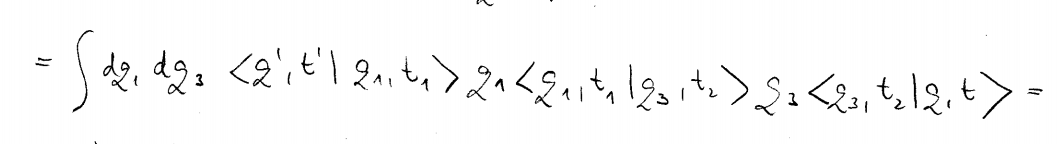 = ∫ dq₁ dq₃ <q', t' | q₁, t₁> q₁ <q₁, t₁ | q₃, t₂> q₃ <q₃, t₂ | q, t> =